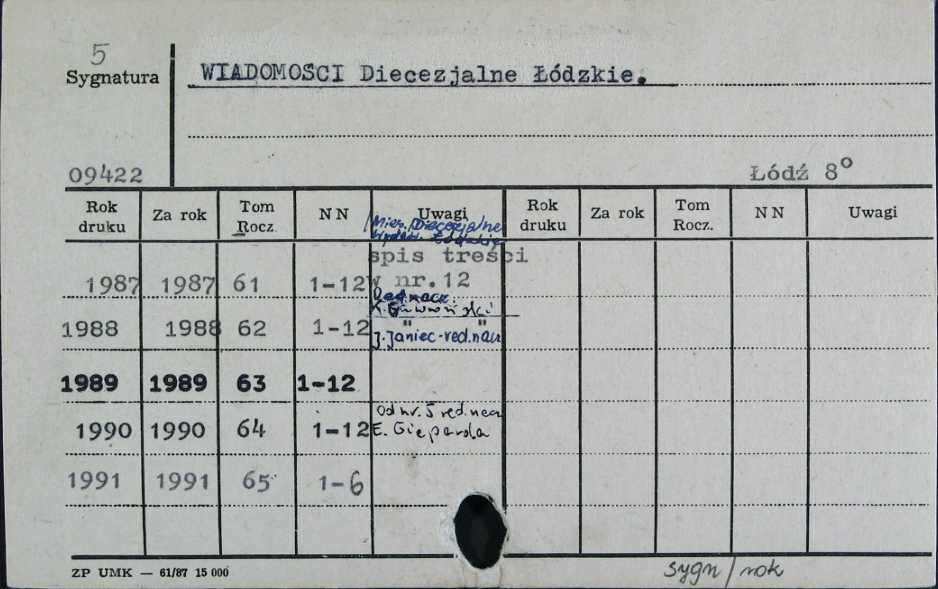 5
Sygnatura
WIADOMOSCI Diecezjalne Łódzkie.
09422
Łódź 8°
Rok druku Za rok Tom Rocz. NN Uwagi Rok druku Za rok Tom Rocz. NN Uwagi
Mies. Diecezjalne
Łódzkie
spis treści
1987 1987 61 1-12 w nr. 12
Red. nacz.
1988 1988 62 1-12 " "
J. Janiec - red. nacz
1989 1989 63 1-12
Od nr. 5 red. nacz
1990 1990 64 1-12 E.
1991 1991 65 1-6
ZP UMK — 61/87 15 000
sygn/rok